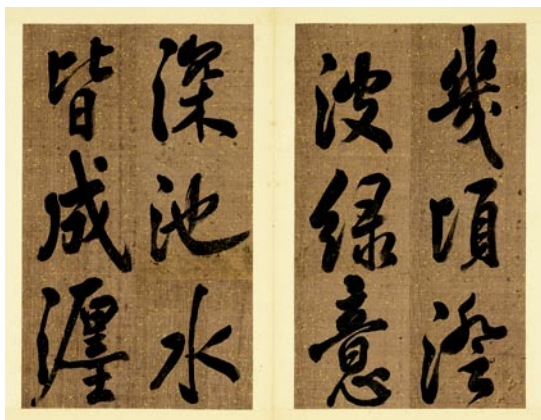 幾頃澄
波緑意
深池水
皆成瀍